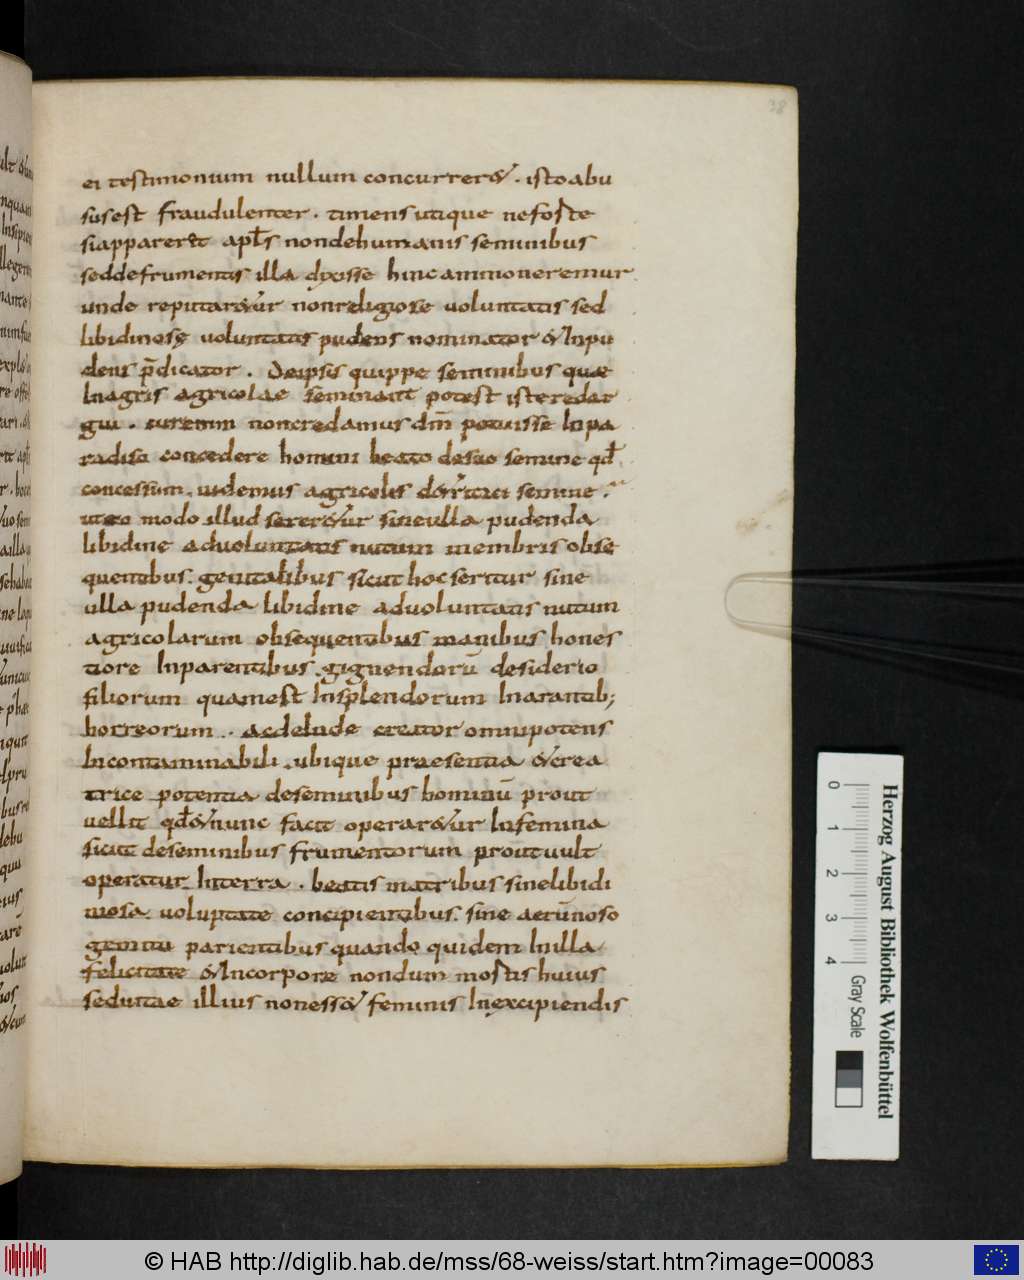 38
ei testimonium nullum concurrer&. istoabu
susest fraudulenter. timensutique nefoste
siapparerēt aptˉs nondehumanis seminibus
seddefrumentis illa dyxisse hincammoneremur
unde reputar&ur nonreligiose voluntatis sed
libidinosę voluntatis pudens nominator &Inpu
dens p̄dicator. Deipsis quippe seminibus quae
Inagris agricolae seminant potest isteredar
gui. curenim noncredamus dm̄ potuisse Inpa
radiso concedere homini beato desuo semine qd̄
concessum. uidemus agricolis d&ritici semine.
uteo modo illud serer&ur sineulla pudenda
libidine advoluntatis nutum membris obse
quentibus. genitalibus sicut hocseritur sine
ulla pudenda libidine advoluntatis nutum
agricolarum obsequentibus manibus hones
tiore Inparentibus gignendorū desiderio
filiorum quamest Insplendorum Inarantib;
horreorum. acdeinde creator omnipotens
Incontaminabili. ubique praesentia &crea
trice potentia deseminibus hominū prout
vellit qd̄&nunc facit operar&ur Infemina
sicut deseminibus frumentorum proutvult
operatur Interra. beatis matribus sinelibidi
nosa voluptate concipientibus. sine aerūnoso
gemitu parientibus quando quidem Inilla
felicitate &Incorpore nondum mostis huius
seduitae illius noness& feminis Inexcipiendis
Herzog August Bibliothek Wolfenbüttel
0 1 2 3 4 Gray Scale
© HAB http://diglib.hab.de/mss/68-weiss/start.htm?image=00083